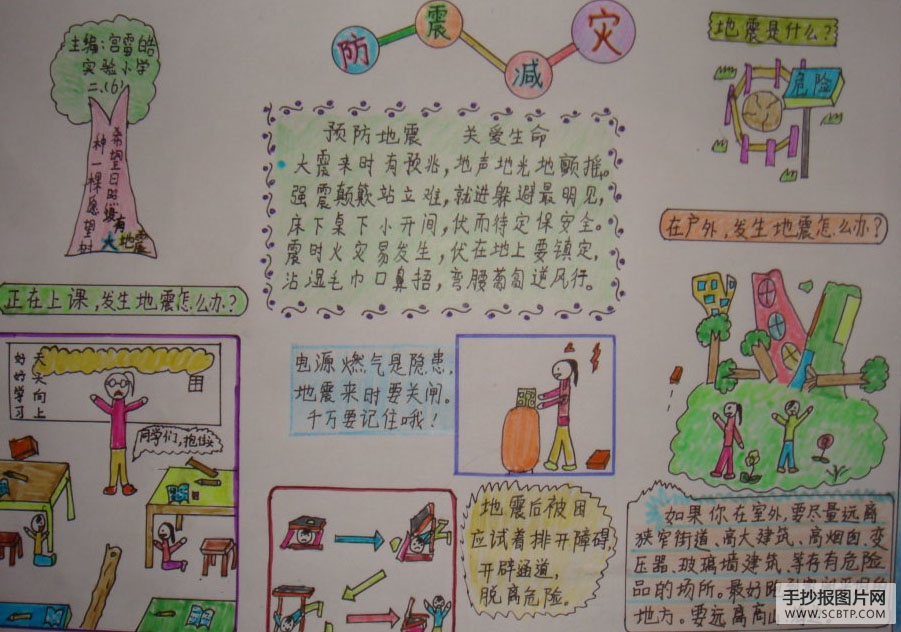 防震减灾
主编:宫雪皓
实验小学
二.(6)
希望日时候有
种一棵愿望树
大地震
地震是什么?
危险
预防地震 关爱生命
大震来时有预兆,地声地光地颤摇。
强震颠簸站立难,就近躲避最明见,
床下桌下小开间,伏而待定保安全。
震时火灾易发生,伏在地上要镇定,
沾湿毛巾口鼻捂,弯腰匍匐逆风行。
在户外,发生地震怎么办?
正在上课,发生地震怎么办?
好好学习
天天向上
同学们,抱头
电源燃气是隐患,
地震来时要关闸。
千万要记住哦!
地震后被困
应试着排开障碍,
开辟通道,
脱离危险。
如果你在室外,要尽量远离
狭窄街道、高大建筑、高烟囱、变
压器、玻璃墙建筑、等存有危险
品的场所。最好
地方。要远离高
手抄报图片网
WWW.SCBTP.COM